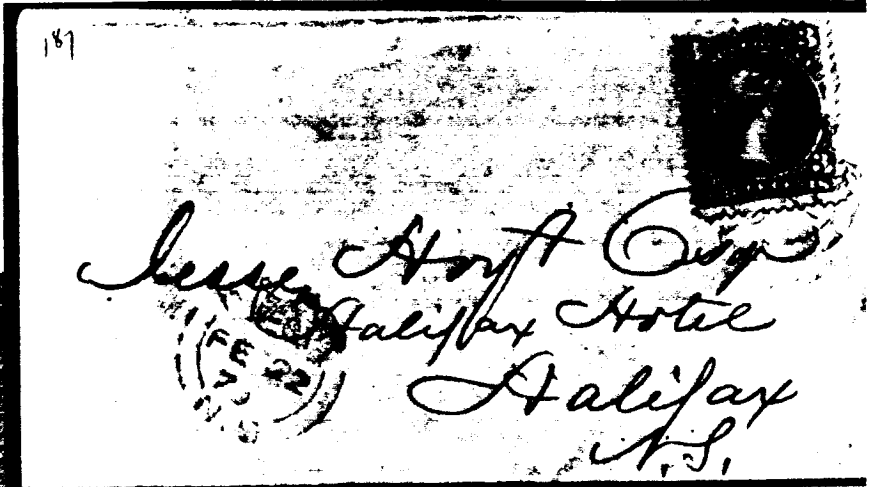 187
3
Jesse Hoyt Esqr
Halifax Hotel
Halifax
N.S.
FE 22
7
N.S